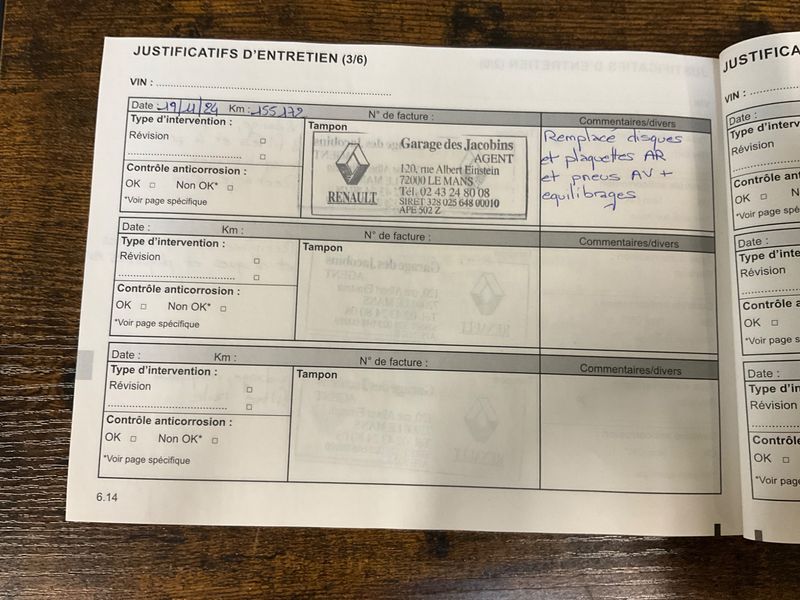 JUSTIFICATIFS D'ENTRETIEN (3/6)
VIN :
Date : 19/11/24 Km : 155 172 N° de facture :
Type d'intervention :
Révision
Contrôle anticorrosion :
OK Non OK*
*Voir page spécifique
Tampon
RENAULT
Garage des Jacobins
AGENT
120, rue Albert Einstein
72000 LE MANS
Tél. 02 43 24 80 08
SIRET 328 025 648 00010
APE 502 Z
Commentaires/divers
Remplacé disques
et plaquettes AR
et pneus AV +
equilibrages
Date : Km : N° de facture :
Type d'intervention :
Révision
Contrôle anticorrosion :
OK Non OK*
*Voir page spécifique
Tampon
Commentaires/divers
Date : Km : N° de facture :
Type d'intervention :
Révision
Contrôle anticorrosion :
OK Non OK*
*Voir page spécifique
Tampon
Commentaires/divers
6.14
JUSTIFICA
VIN :
Date :
Type d'interv
Révision
Contrôle anti
OK N
*Voir page spé
Date :
Type d'inte
Révision
Contrôle a
OK
*Voir page s
Date :
Type d'in
Révision
Contrôle
OK
*Voir pag